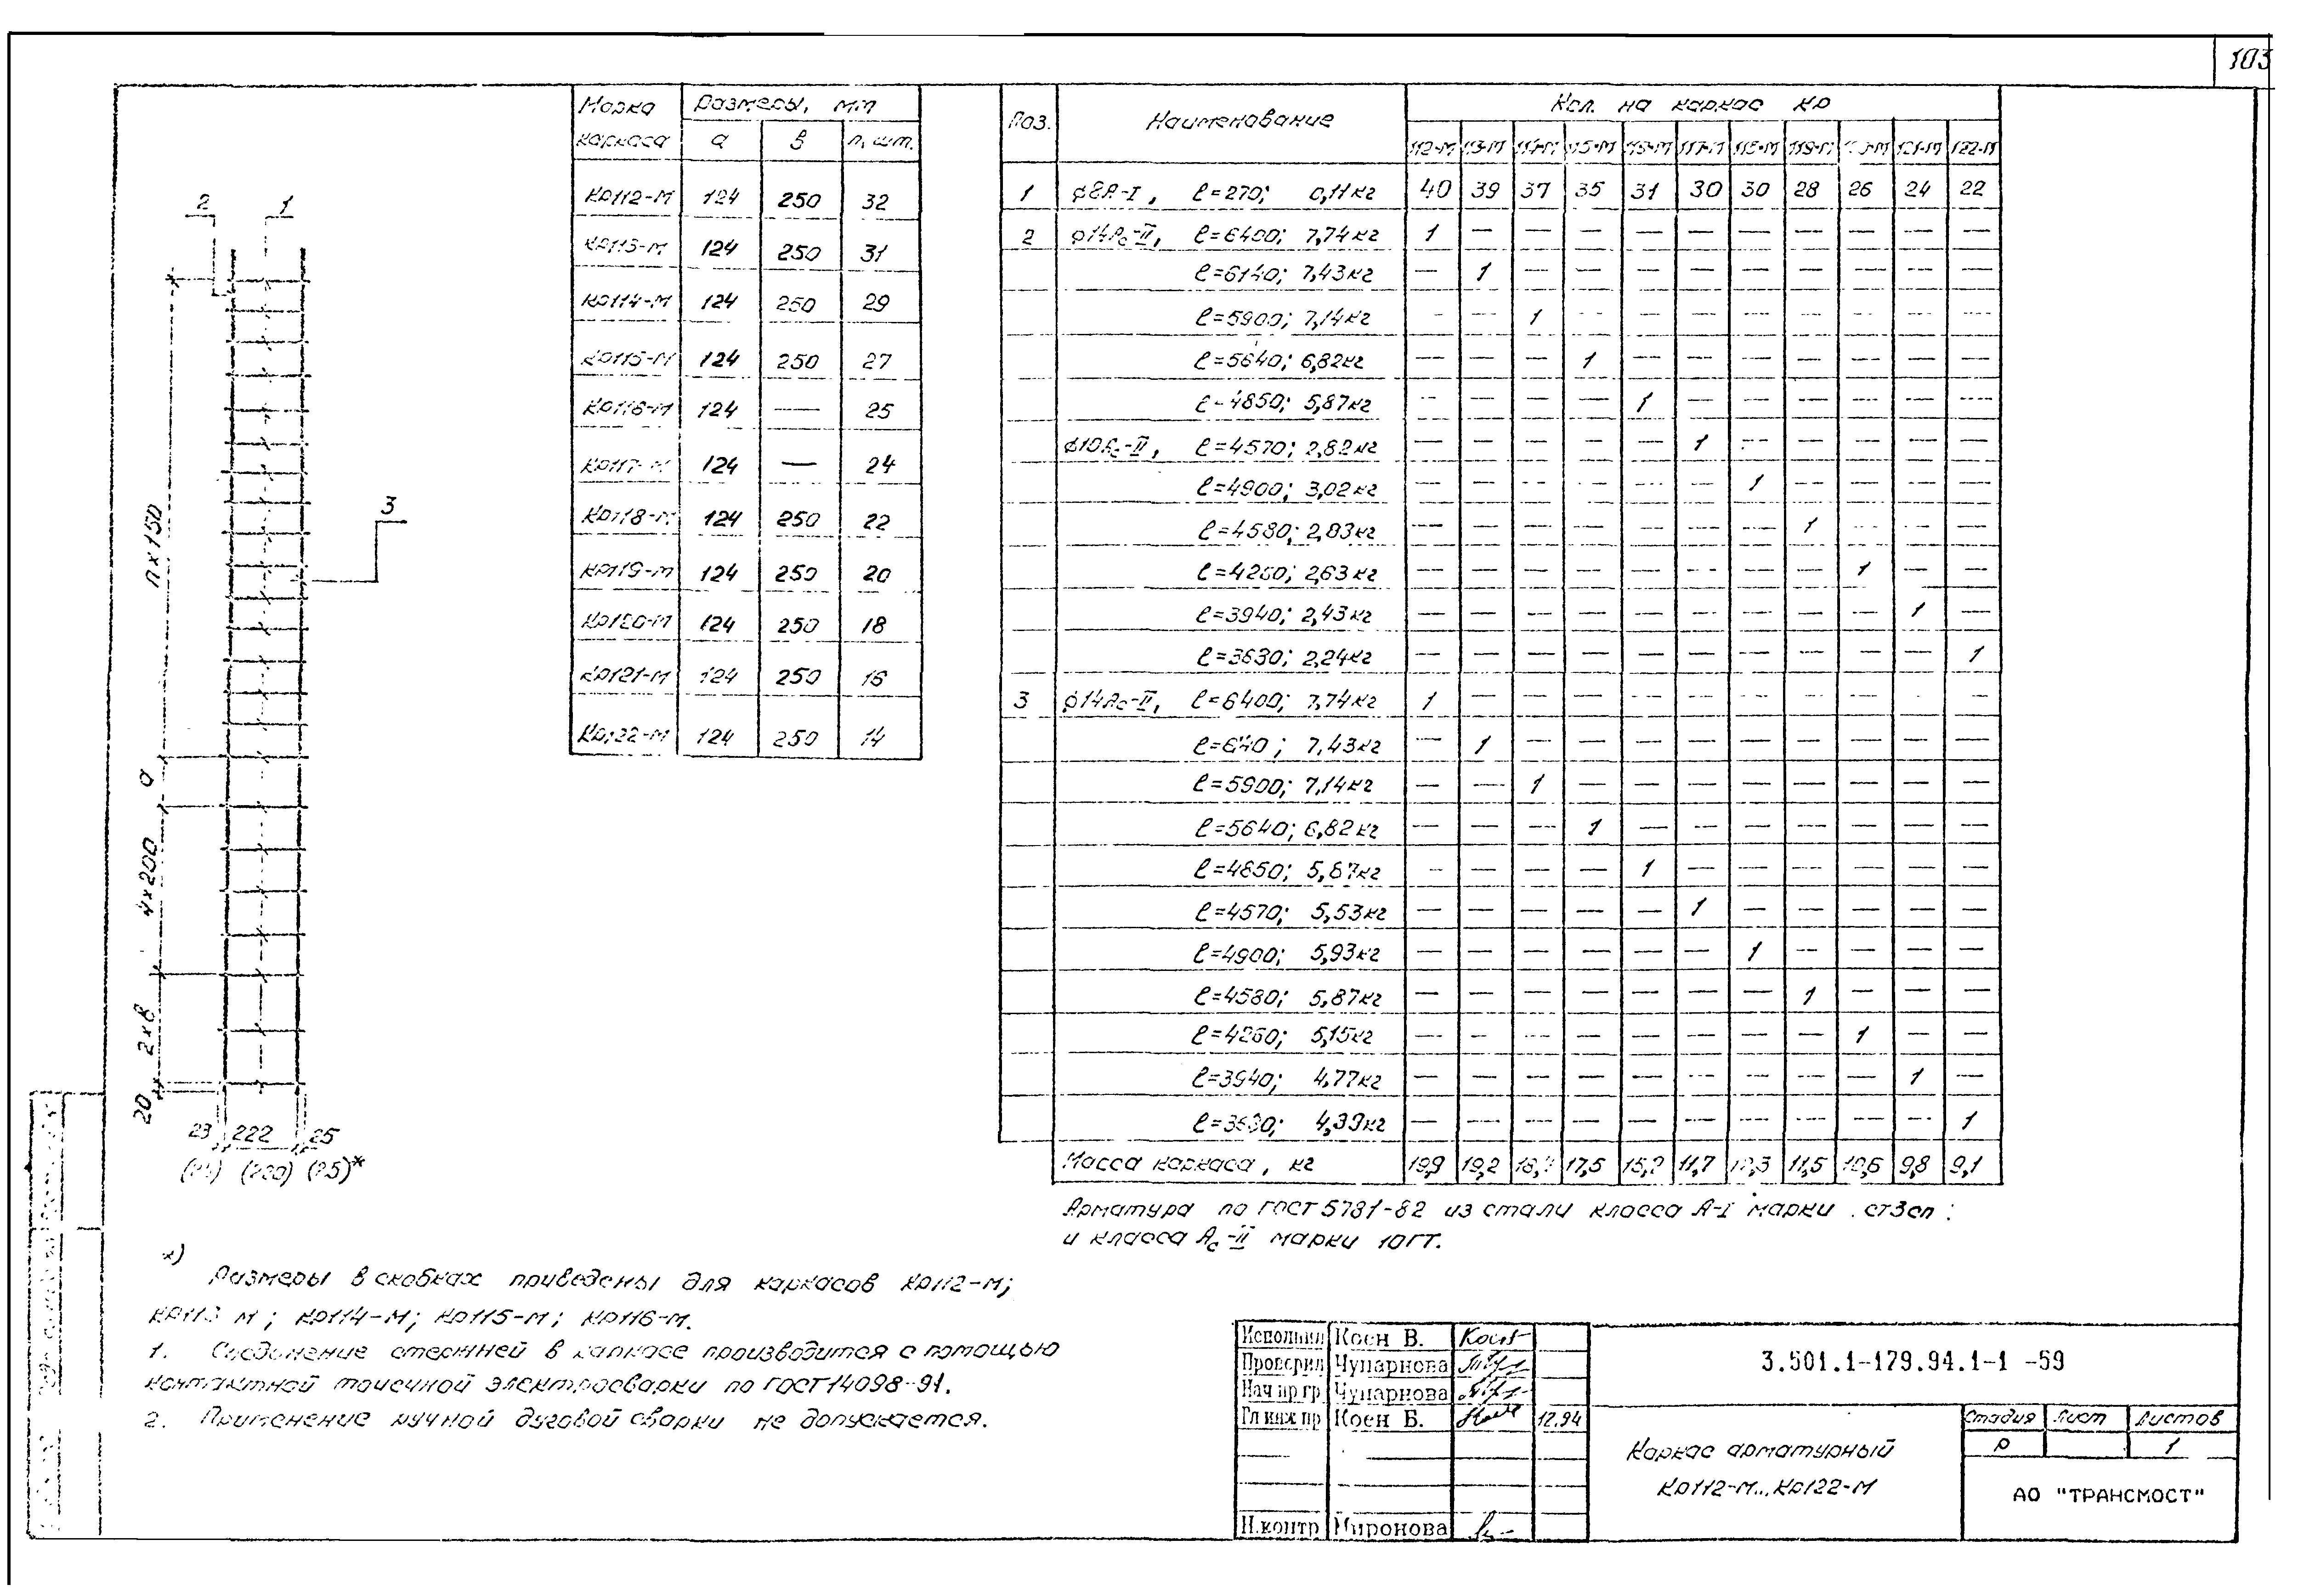 103
Марка каркаса | Размеры, мм
а | в | n, шт.
Кр112-М 124 250 32
Кр113-М 124 250 31
Кр114-М 124 250 29
Кр115-М 124 250 27
Кр116-М 124 — 25
Кр117-М 124 — 24
Кр118-М 124 250 22
Кр119-М 124 250 20
Кр120-М 124 250 18
Кр121-М 124 250 16
Кр122-М 124 250 14
2 1
3
n×150
а
4×200
2×в
20
23 222 25
(230) (25)*
Поз. | Наименование | Кол. на каркас Кр
112-М 113-М 114-М 115-М 116-М 117-М 118-М 119-М 120-М 121-М 122-М
1 ⌀8А-I, ℓ=270; 0,11кг 40 39 37 35 31 30 30 28 26 24 22
2 ⌀14Ас-II, ℓ=6400; 7,74кг 1 — — — — — — — — — —
ℓ=6140; 7,43кг — 1 — — — — — — — — —
ℓ=5900; 7,14кг — — 1 — — — — — — — —
ℓ=5640; 6,82кг — — — 1 — — — — — — —
ℓ=4850; 5,87кг — — — — 1 — — — — — —
⌀10Ас-II, ℓ=4570; 2,82кг — — — — — 1 — — — — —
ℓ=4900; 3,02кг — — — — — — 1 — — — —
ℓ=4580; 2,83кг — — — — — — — 1 — — —
ℓ=4260; 2,63кг — — — — — — — — 1 — —
ℓ=3940; 2,43кг — — — — — — — — — 1 —
ℓ=3630; 2,24кг — — — — — — — — — — 1
3 ⌀14Ас-II, ℓ=6400; 7,74кг 1 — — — — — — — — — —
ℓ=6140; 7,43кг — 1 — — — — — — — — —
ℓ=5900; 7,14кг — — 1 — — — — — — — —
ℓ=5640; 6,82кг — — — 1 — — — — — — —
ℓ=4850; 5,87кг — — — — 1 — — — — — —
ℓ=4570; 5,53кг — — — — — 1 — — — — —
ℓ=4900; 5,93кг — — — — — — 1 — — — —
ℓ=4580; 5,87кг — — — — — — — 1 — — —
ℓ=4260; 5,15кг — — — — — — — — 1 — —
ℓ=3940; 4,77кг — — — — — — — — — 1 —
ℓ=3630; 4,39кг — — — — — — — — — — 1
Масса каркаса, кг 19,9 19,2 17,5 11,7 11,5 10,6 9,8 9,1
Арматура по ГОСТ 5781-82 из стали класса А-I марки Ст3сп
и класса Ас-II марки 10ГТ.
*)
Размеры в скобках приведены для каркасов Кр112-М;
Кр113-М; Кр114-М; Кр115-М; Кр116-М.
1. Соединение стержней в каркасе производится с помощью
контактной точечной электросварки по ГОСТ 14098-91.
2. Применение ручной дуговой сварки не допускается.
Исполнил Коен В.
Проверил Чупарнова
Нач пр гр Чупарнова
Гл инж пр Коен Б. 12.94
Н.контр Миронова
3.501.1-179.94.1-1 -59
Каркас арматурный
Кр112-М...Кр122-М
Стадия Лист Листов
Р 1
АО "ТРАНСМОСТ"